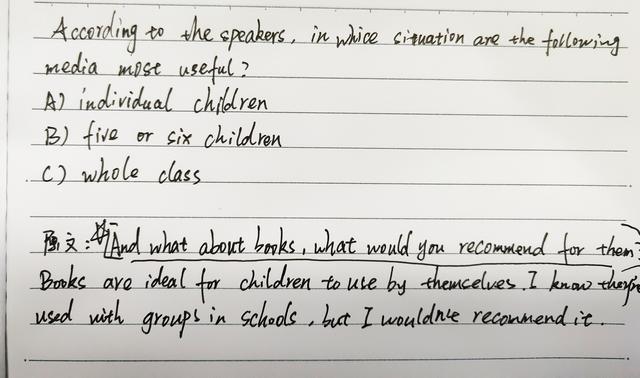 According to the speakers, in whice situation are the following
media most useful?
A) individual children
B) five or six children
C) whole class
原文: And what about books, what would you recommend for them?
Books are ideal for children to use by themselves. I know they're
used with groups in schools, but I wouldn't recommend it.